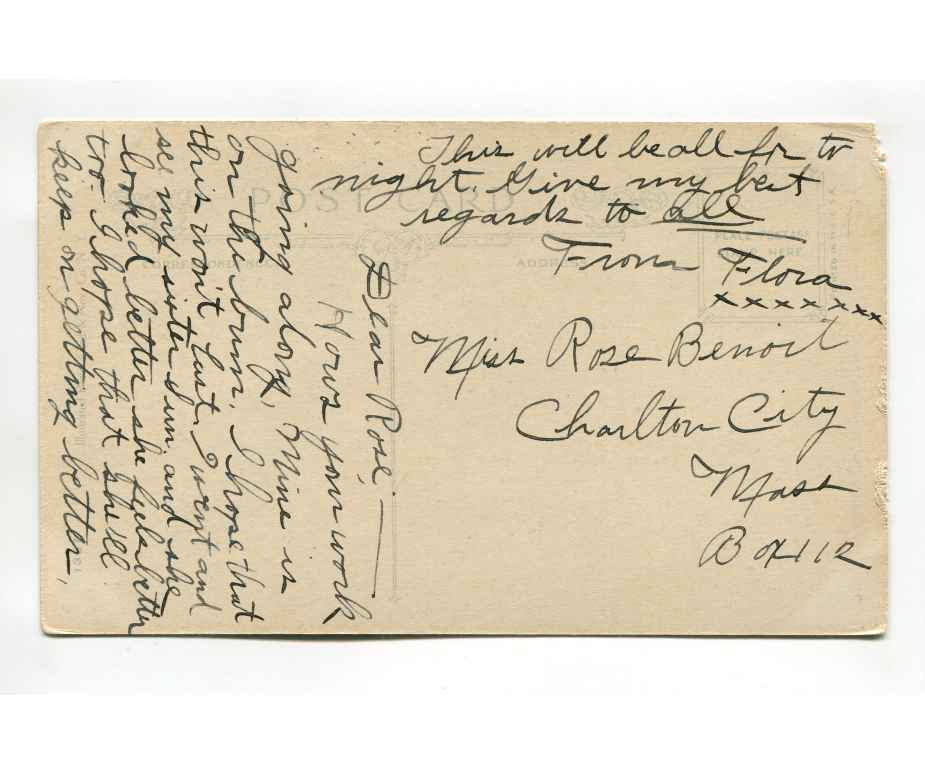 POST CARD
CORRESPONDENCE
ADDRESS
Dear Rose, —
Hows your work
going along, Mine is
on the bum. I hope that
this won't last. I went and
see my sister Sun and she
looked better she feels better
too. I hope that she'll
keep on getting better,
This will be all for to
night. Give my best
regards to all
From Flora
xxxxxxxx
Miss Rose Benoit
Charlton City
Mass
Box 112